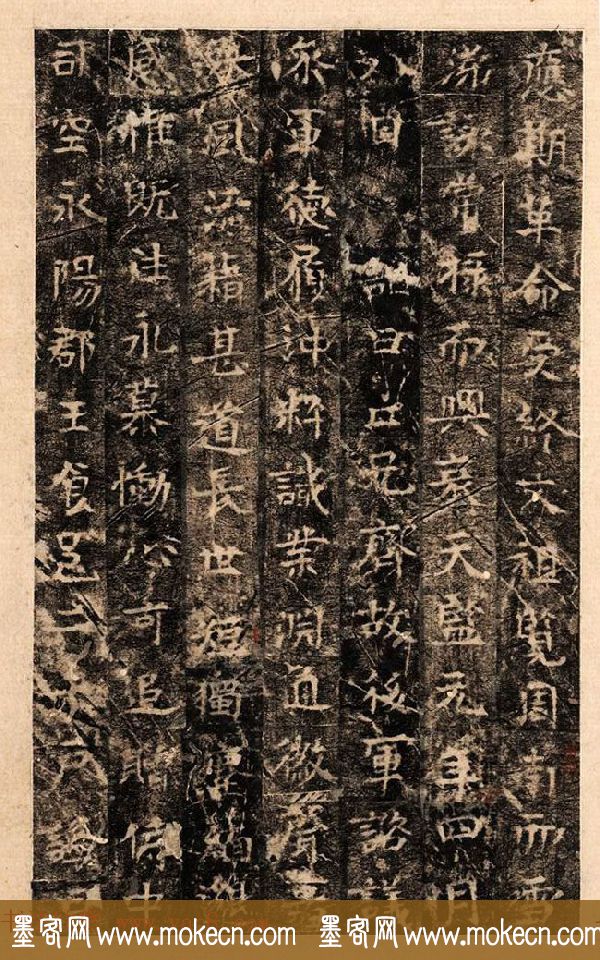 應期革命受終文祖覽周南而雪
涕詠常棣而興哀天監元年四月
八日詔曰亡兄齊故後軍諮議
參軍德履沖粹識業淵通徽聲嘉
譽風流藉甚道長世短緬邈
感惟既往永慕慟心可追贈侍中
司空永陽郡王食邑二千戶謚曰
墨客网 www.mokecn.com 墨客网 www.mokecn.com